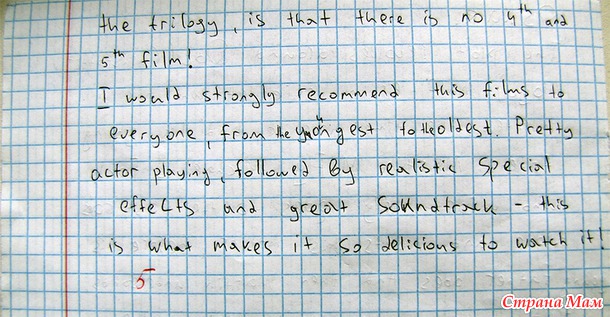 the trilogy, is that there is no 4th and
5th film!
I would strongly recommend this films to
everyone, from the youngest to the oldest. Pretty
actor playing, followed by realistic special
effects and great soundtrack - this
is what makes it so delicious to watch it!
5
Страна Мам